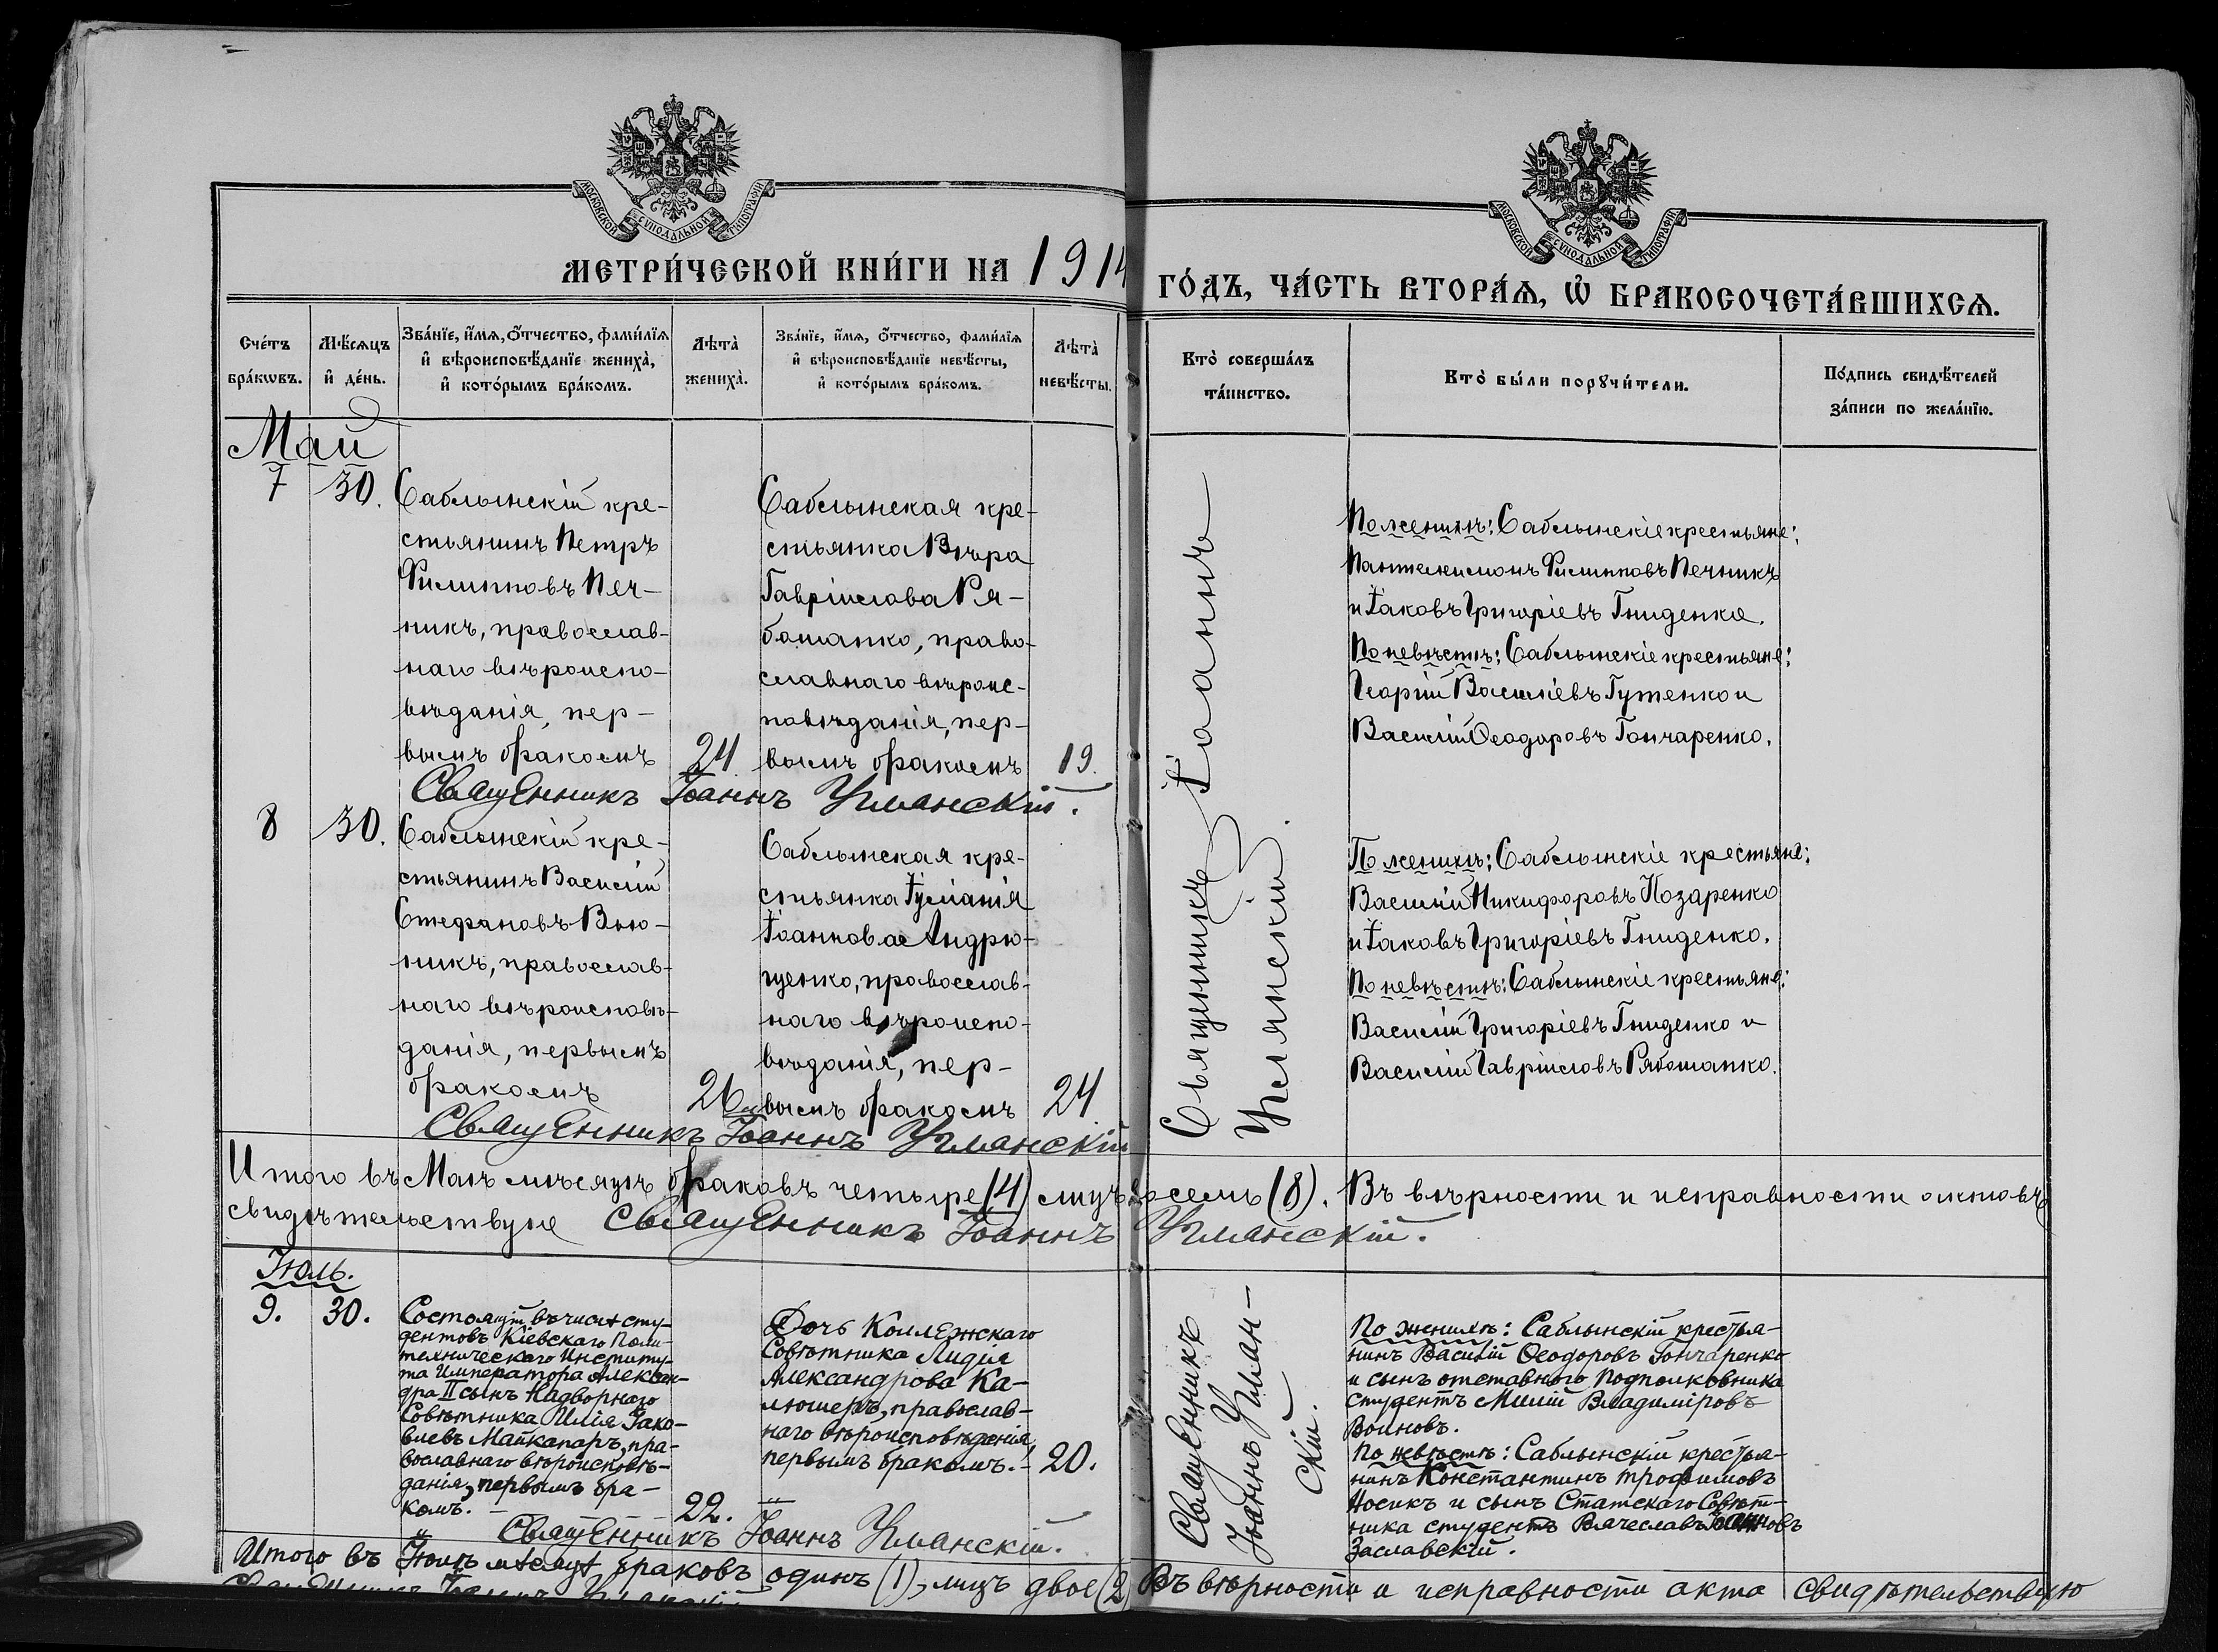 МОСКОВСКОЙ СѴНОДАЛЬНОЙ ТИПОГРАФІИ
МОСКОВСКОЙ СѴНОДАЛЬНОЙ ТИПОГРАФІИ
МЕТРИ́ЧЕСКОЙ КНИ́ГИ НА 1914 ГО́ДЪ, ЧА́СТЬ ВТОРА́Ѧ, Ѽ БРАКОСОЧЕТА́ВШИХСѦ.
Сче́тъ
бра́кѡвъ.
Мѣ́сѧцъ
и҆ де́нь.
Зва́нїе, и҆́мѧ, ѻ҆́тчество, фами́лїѧ
и҆ вѣроисповѣ́данїе жениха̀,
и҆ кото́рымъ бра́комъ.
Лѣта̀
жениха̀.
Зва́нїе, и҆́мѧ, ѻ҆́тчество, фами́лїѧ
и҆ вѣроисповѣ́данїе невѣ́сты,
и҆ кото́рымъ бра́комъ.
Лѣта̀
невѣ́сты.
Кто̀ соверша́лъ
та́инство.
Кто̀ бы́ли порꙋчи́тели.
По́дпись свидѣ́телей
за́писи по жела́нїю.
Май
7
30.
Саблынскій кре-
стьянинъ Петръ
Филипповъ Печ-
никъ, православ-
наго вѣроиспо-
вѣданія, пер-
вымъ бракомъ
24
Саблынская кре-
стьянка Вѣра
Гавріилова Ря-
бошапко, право-
славнаго вѣроис-
повѣданія, пер-
вымъ бракомъ
19.
Священникъ Іоаннъ Уманскій.
Священникъ Іоаннъ
Уманскій.
По женихѣ: Саблынскіе крестьяне:
Пантелеимонъ Филипповъ Печникъ
и Іаковъ Григоріевъ Гниденко.
По невѣстѣ: Саблынскіе крестьяне:
Георгій Василіевъ Гутенко и
Василій Ѳеодоровъ Гончаренко.
8
30.
Саблынскій кре-
стьянинъ Василій
Стефановъ Вью-
никъ, православ-
наго вѣроисповѣ-
данія, первымъ
бракомъ
26
Саблынская кре-
стьянка Іуліанія
Іоаннова Андрю-
щенко, православ-
наго вѣроиспо-
вѣданія, пер-
вымъ бракомъ
24
Священникъ Іоаннъ Уманскій
По женихѣ: Саблынскіе крестьяне:
Василій Никифоровъ Козаренко
и Іаковъ Григоріевъ Гниденко.
По невѣстѣ: Саблынскіе крестьяне:
Василій Григоріевъ Гниденко и
Василій Гавріиловъ Рябошапко.
Итого въ Маѣ мѣсяцѣ браковъ четыре (4) лицъ восемь (8). Въ вѣрности и исправности актовъ
свидѣтельствую Священникъ Іоаннъ Уманскій.
Іюль.
9.
30.
Состоящій въ числѣ сту-
дентовъ Кіевскаго Поли-
техническаго Институ-
та Императора Алексан-
дра II сынъ Надворнаго
Совѣтника Илія Іако-
влевъ Майкапаръ, пра-
вославнаго вѣроисповѣ-
данія, первымъ бра-
комъ. —
22.
Дочь Коллежскаго
Совѣтника Лидія
Александрова Ка-
люшеръ, православ-
наго вѣроисповѣданія,
первымъ бракомъ. —
20.
Священникъ Іоаннъ Уманскій.
Священникъ
Іоаннъ Уман-
скій.
По женихѣ: Саблынскій крестья-
нинъ Василій Ѳеодоровъ Гончаренко
и сынъ отставного Подполковника
студентъ Милій Владиміровъ
Воиновъ.
По невѣстѣ: Саблынскій крестья-
нинъ Константинъ Трофимовъ
Носикъ и сынъ Статскаго Совѣт-
ника студентъ Вячеславъ Іоанновъ
Заславскій.
Итого въ Іюлѣ мѣсяцѣ браковъ одинъ (1), лицъ двое (2 Въ вѣрности и исправности акта свидѣтельствую
Священникъ Іоаннъ Уманскій